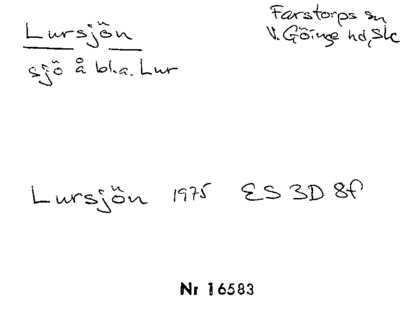 Lursjön
Farstorps sn
V. Göinge hd, Sk
sjö å bl.a. Lur
Lursjön 1975 ES 3D 8f
Nr 16583